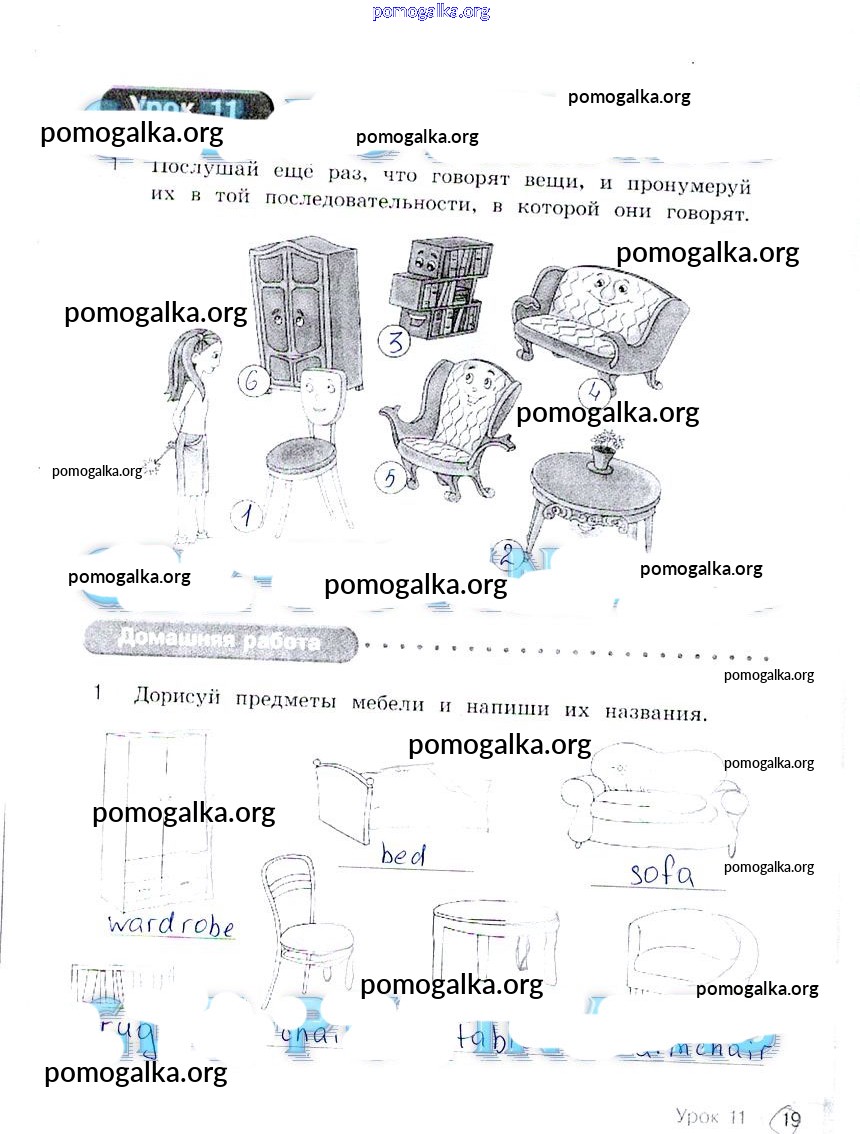 pomogalka.org
Урок 11
pomogalka.org
pomogalka.org
pomogalka.org
1 Послушай ещё раз, что говорят вещи, и пронумеруй
их в той последовательности, в которой они говорят.
pomogalka.org
pomogalka.org
3
6
4
pomogalka.org
pomogalka.org
5
1
2
pomogalka.org
pomogalka.org
pomogalka.org
Домашняя работа
pomogalka.org
1 Дорисуй предметы мебели и напиши их названия.
pomogalka.org
pomogalka.org
pomogalka.org
bed
sofa
pomogalka.org
wardrobe
pomogalka.org
pomogalka.org
rug
pomogalka.org
Урок 11 19